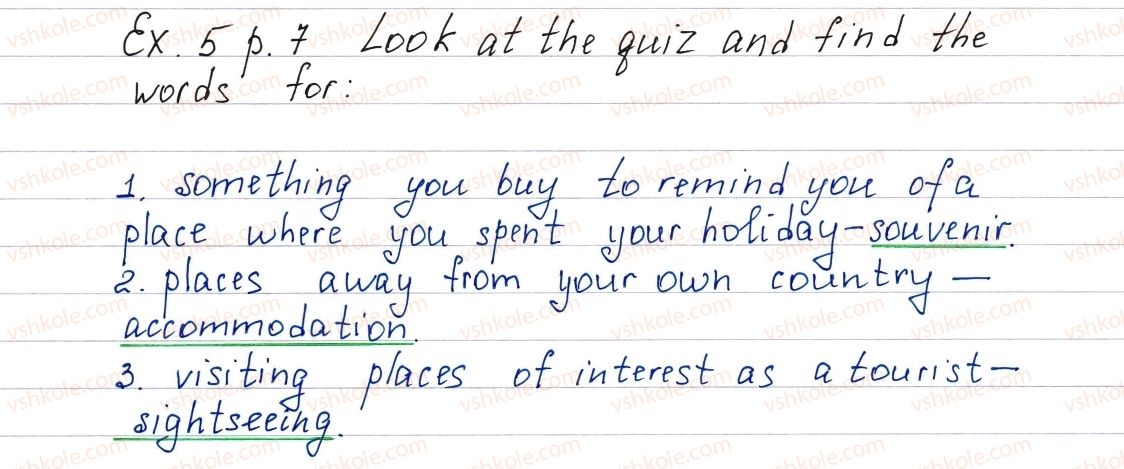 Ex. 5 p. 7 Look at the quiz and find the
words for:
1. something you buy to remind you of a
place where you spent your holiday – souvenir.
2. places away from your own country –
accommodation.
3. visiting places of interest as a tourist –
sightseeing.